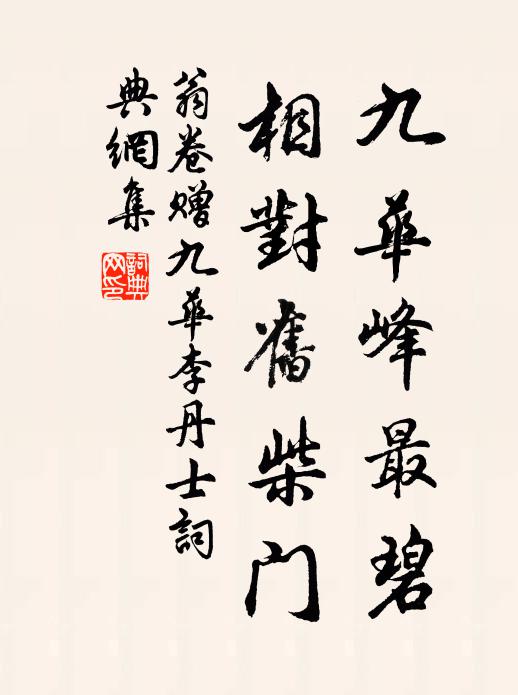 九華峰最碧
相對舊柴门
翁卷赠九華李丹士詞
典網集
詞典网印